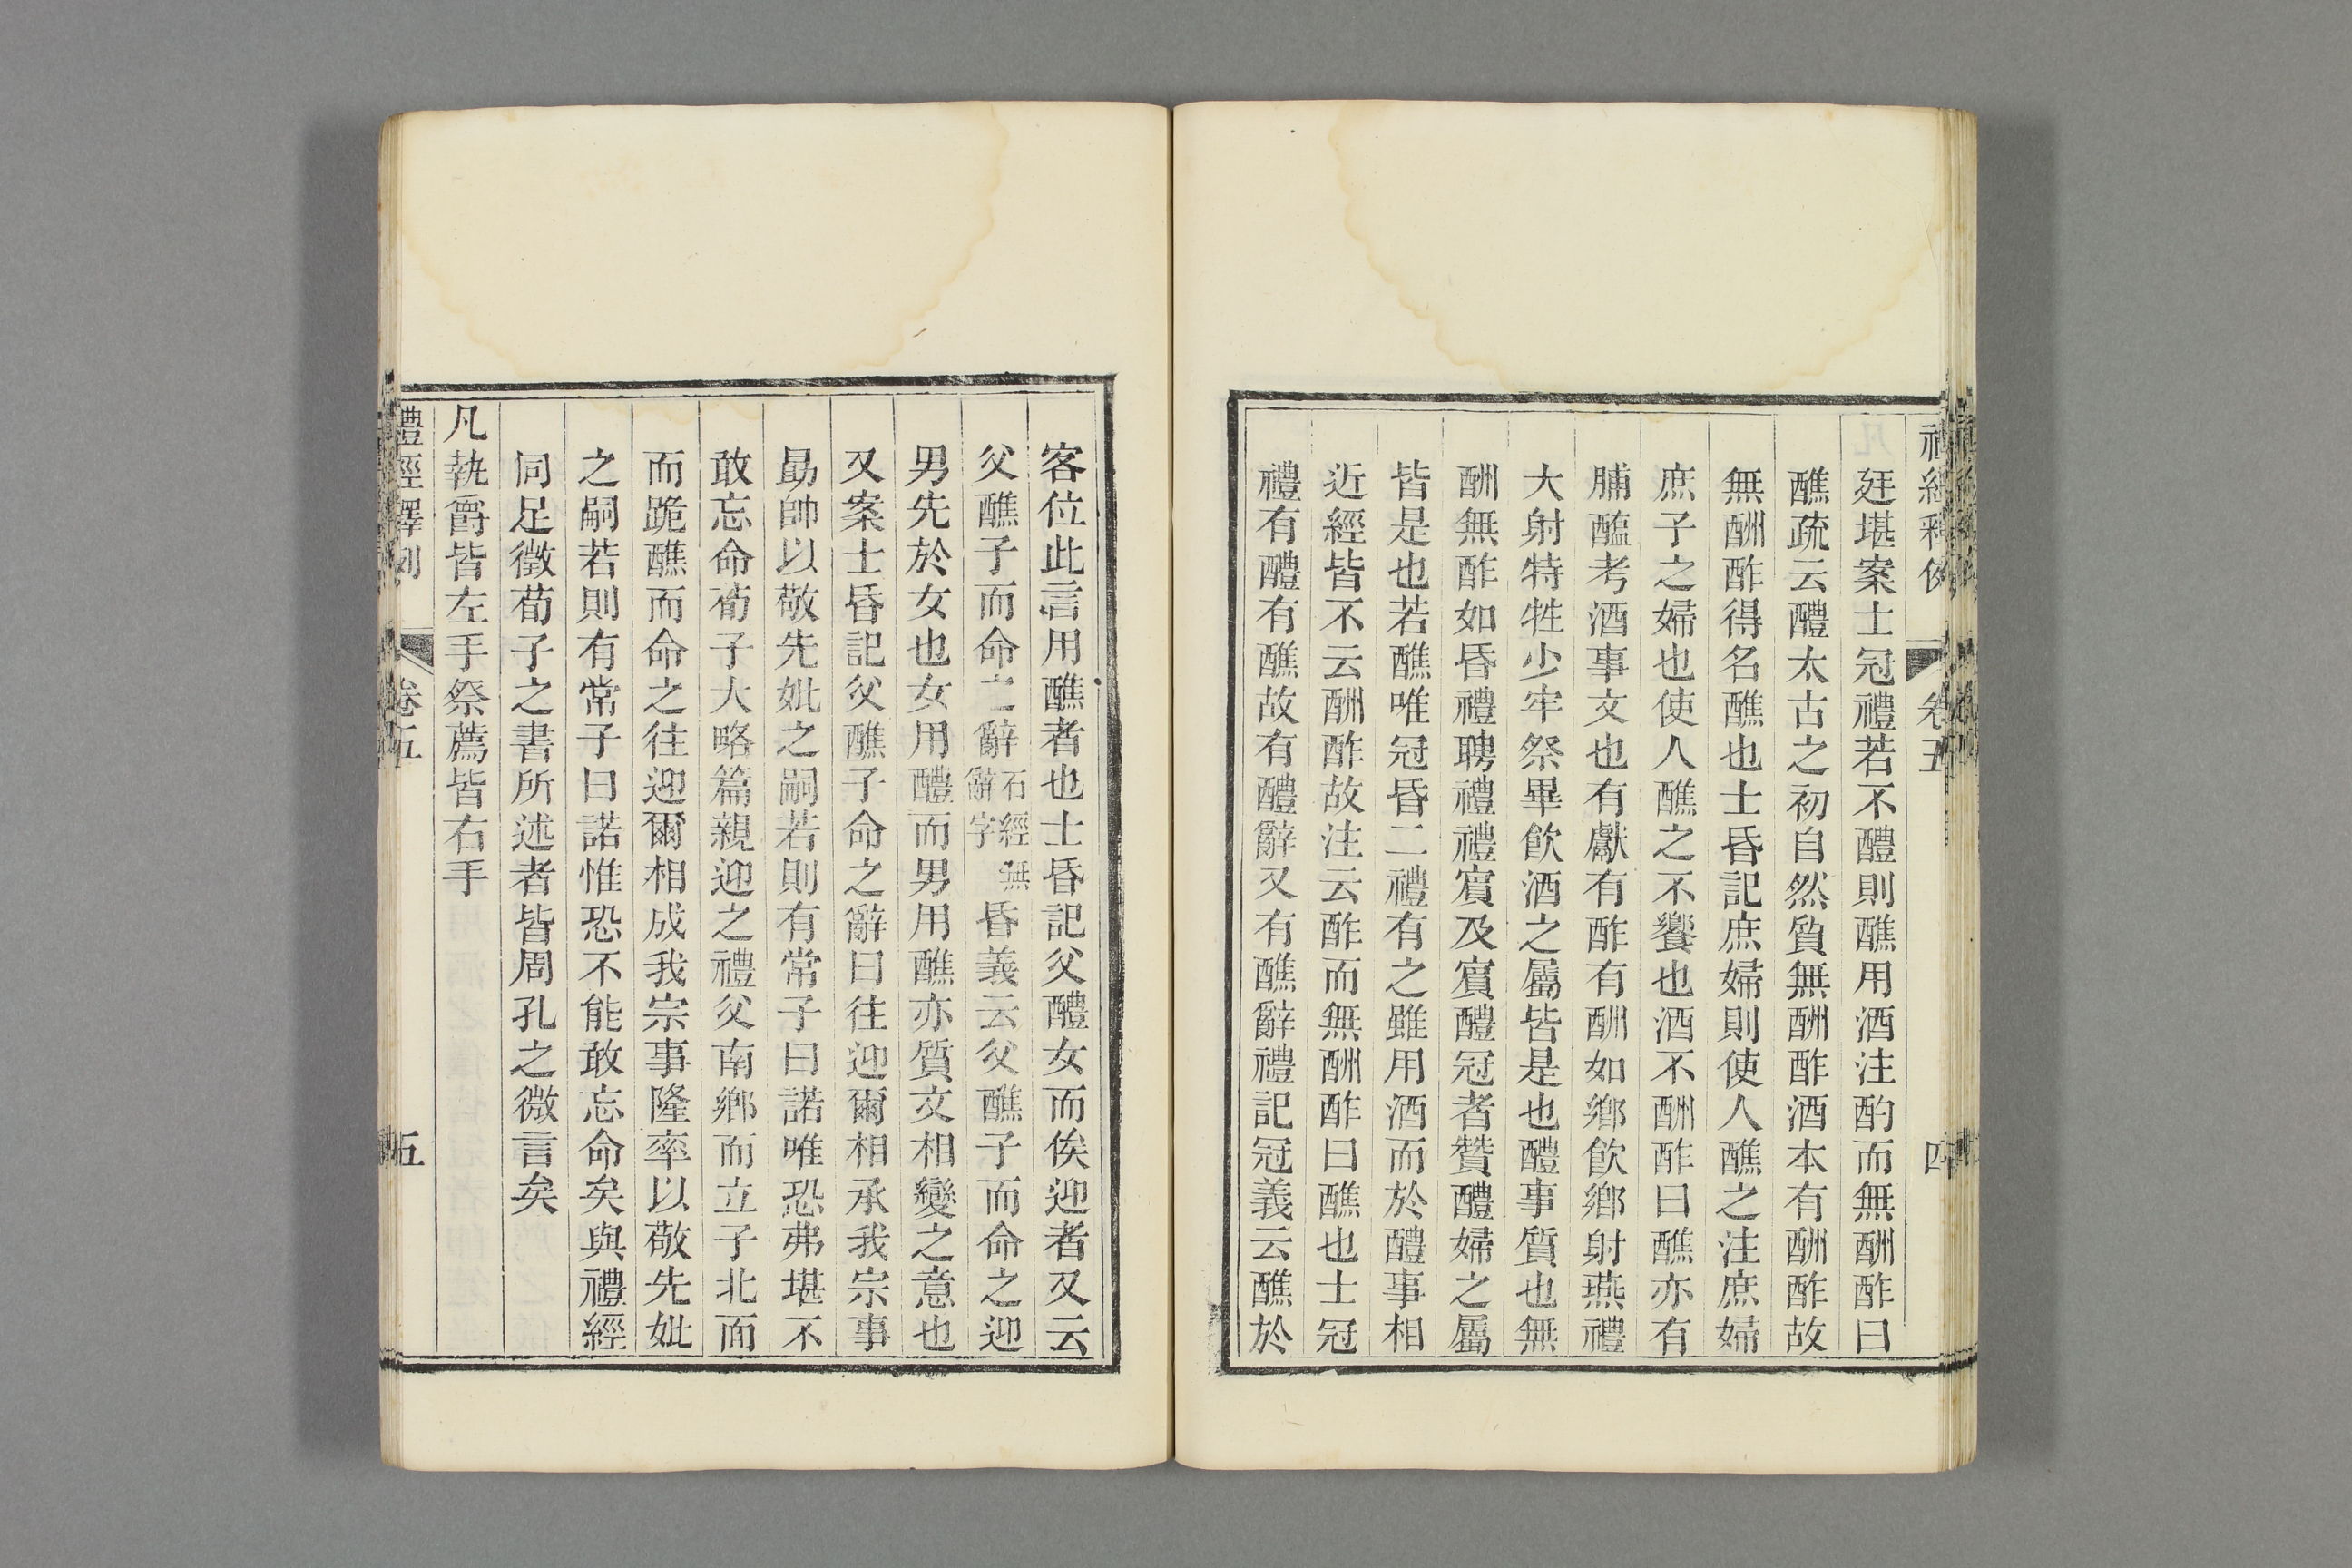 禮經釋例 卷五 四
廷堪案士冠禮若不醴則醮用酒注酌而無酬酢曰
醮疏云醴太古之初自然質無酬酢酒本有酬酢故
無酬酢得名醮也士昏記庶婦則使人醮之注庶婦
庶子之婦也使人醮之不饗也酒不酬酢曰醮亦有
脯醢考酒事文也有獻有酢有酬如鄉飲鄉射燕禮
大射特牲少牢祭畢飲酒之屬皆是也醴事質也無
酬無酢如昏禮聘禮禮賓及賓醴冠者贊醴婦之屬
皆是也若醮唯冠昏二禮有之雖用酒而於醴事相
近經皆不云酬酢故注云酢而無酬酢曰醮也士冠
禮有醴有醮故有醴辭又有醮辭禮記冠義云醮於
客位此言用醮者也士昏記父醴女而俟迎者又云
父醮子而命之辭石經無辭字昏義云父醮子而命之迎
男先於女也女用醴而男用醮亦質文相變之意也
又案士昏記父醮子命之辭曰往迎爾相承我宗事
勖帥以敬先妣之嗣若則有常子曰諾唯恐弗堪不
敢忘命荀子大略篇親迎之禮父南鄉而立子北面
而跪醮而命之往迎爾相成我宗事隆率以敬先妣
之嗣若則有常子曰諾惟恐不能敢忘命矣與禮經
同足徵荀子之書所述者皆周孔之微言矣
凡執爵皆左手祭薦皆右手
禮經釋例 卷五 五